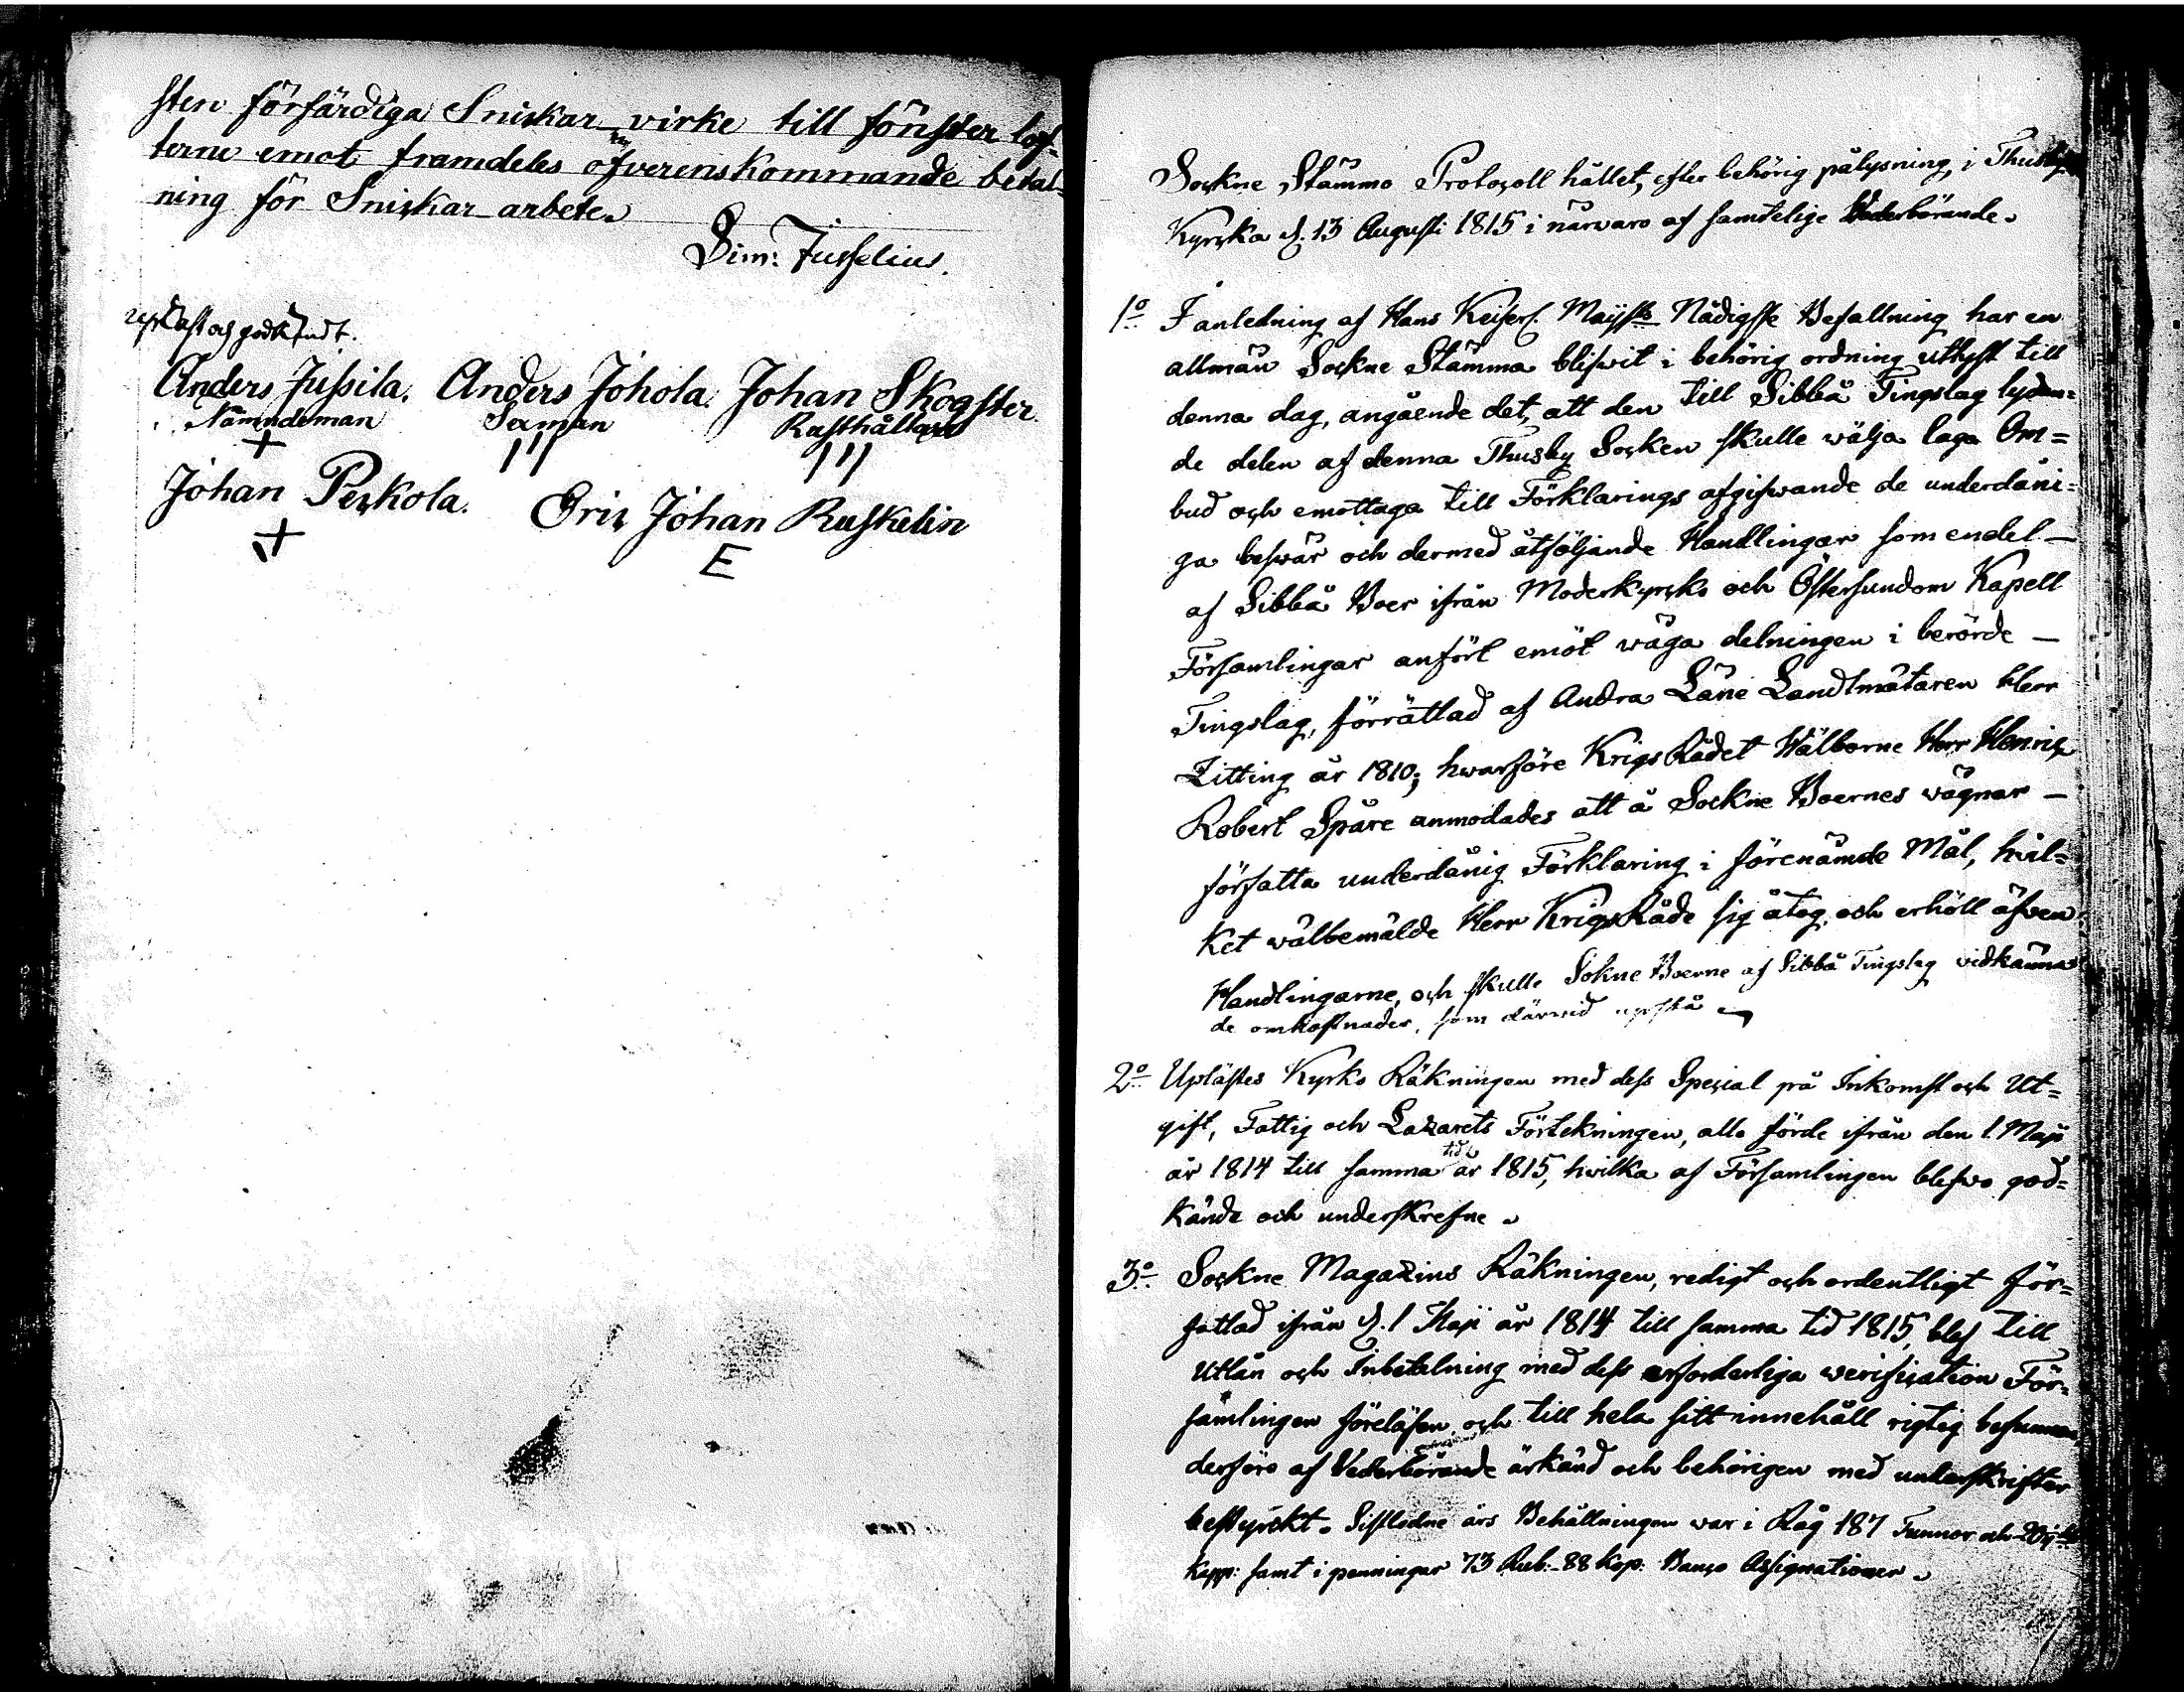 sten förfärdiga Snickar virke till fönster lof-
terne emot framdeles öfverenskommande betal-
ning för Snickar arbete.
Sim: Jusselius.
upläst och godkändt.
Anders Jussila. Anders Johola. Johan Skogster
Nämndeman Sexman Rusthållare
Johan Peckola. Eric Johan Ruskelin
E
Sockne Stämmo Protocoll hållet, efter behörig pålysning, i Thusby
Kyrcka d. 13 Augusti 1815 i närvaro af samtelige Vederbörande.
1o I anledning af Hans Keiserl. Maijsts Nådigste Befallning har en
allmän Sockne Stämma blifwit i behörig ordning utlyst till
denna dag, angående det, att den till Sibbå Tingslag lydan=
de delen af denna Thusby Socken skulle wälja laga Om=
bud och emottaga till Förklarings afgifwande de underdåni=
ga beswär och dermed åtföljande Handlingar som endel —
af Sibbå Boer ifrån Moderkyrcko och Östersundom Kapell
Församlingar anfört emot wäga delningen i berörde —
Tingslag, förrättad af Andra Läne Landtmätaren Herr
Zitting år 1810; hwarföre KrigsRådet Wälborne Herr Henric
Robert Spåre anmodades att å Sockne Boernes wägnar —
författa underdånig Förklaring i förenämde Mål, hvil=
ket wälbemälde Herr KrigsRåde sig åtog, och erhöll äfven
Handlingarne, och skulle Sokne Boerne af Sibbå Tingslag vidkännas
de omkostnader, som därvid uppstå
2o Uplästes Kyrko Räkningen med dess Special på Inkomst och Ut=
gift, Fattig och Lazarets Förtekningen, alla förde ifrån den 1 Maji
år 1814 till samma tid år 1815, hwilka af Församlingen blefwo god=
kände och underskrefne.
3o Sockne Magazins Räkningen, redigt och ordentligt för=
fattad ifrån d. 1 Maji år 1814 till samma tid 1815, blef till
Utlån och Inbetalning med dess erforderliga werification För=
samlingen föreläsen, och till hela sitt innehåll rigtig befunnen,
derföre af Vederbörande ärkänd och behörigen med underskrifter
bestyrckt. Sistledne års Behållningen war i Råg 187 Tunnor och
Kapp: samt i penningar 73 Rub:- 88 Kop. Banco Assignationer.